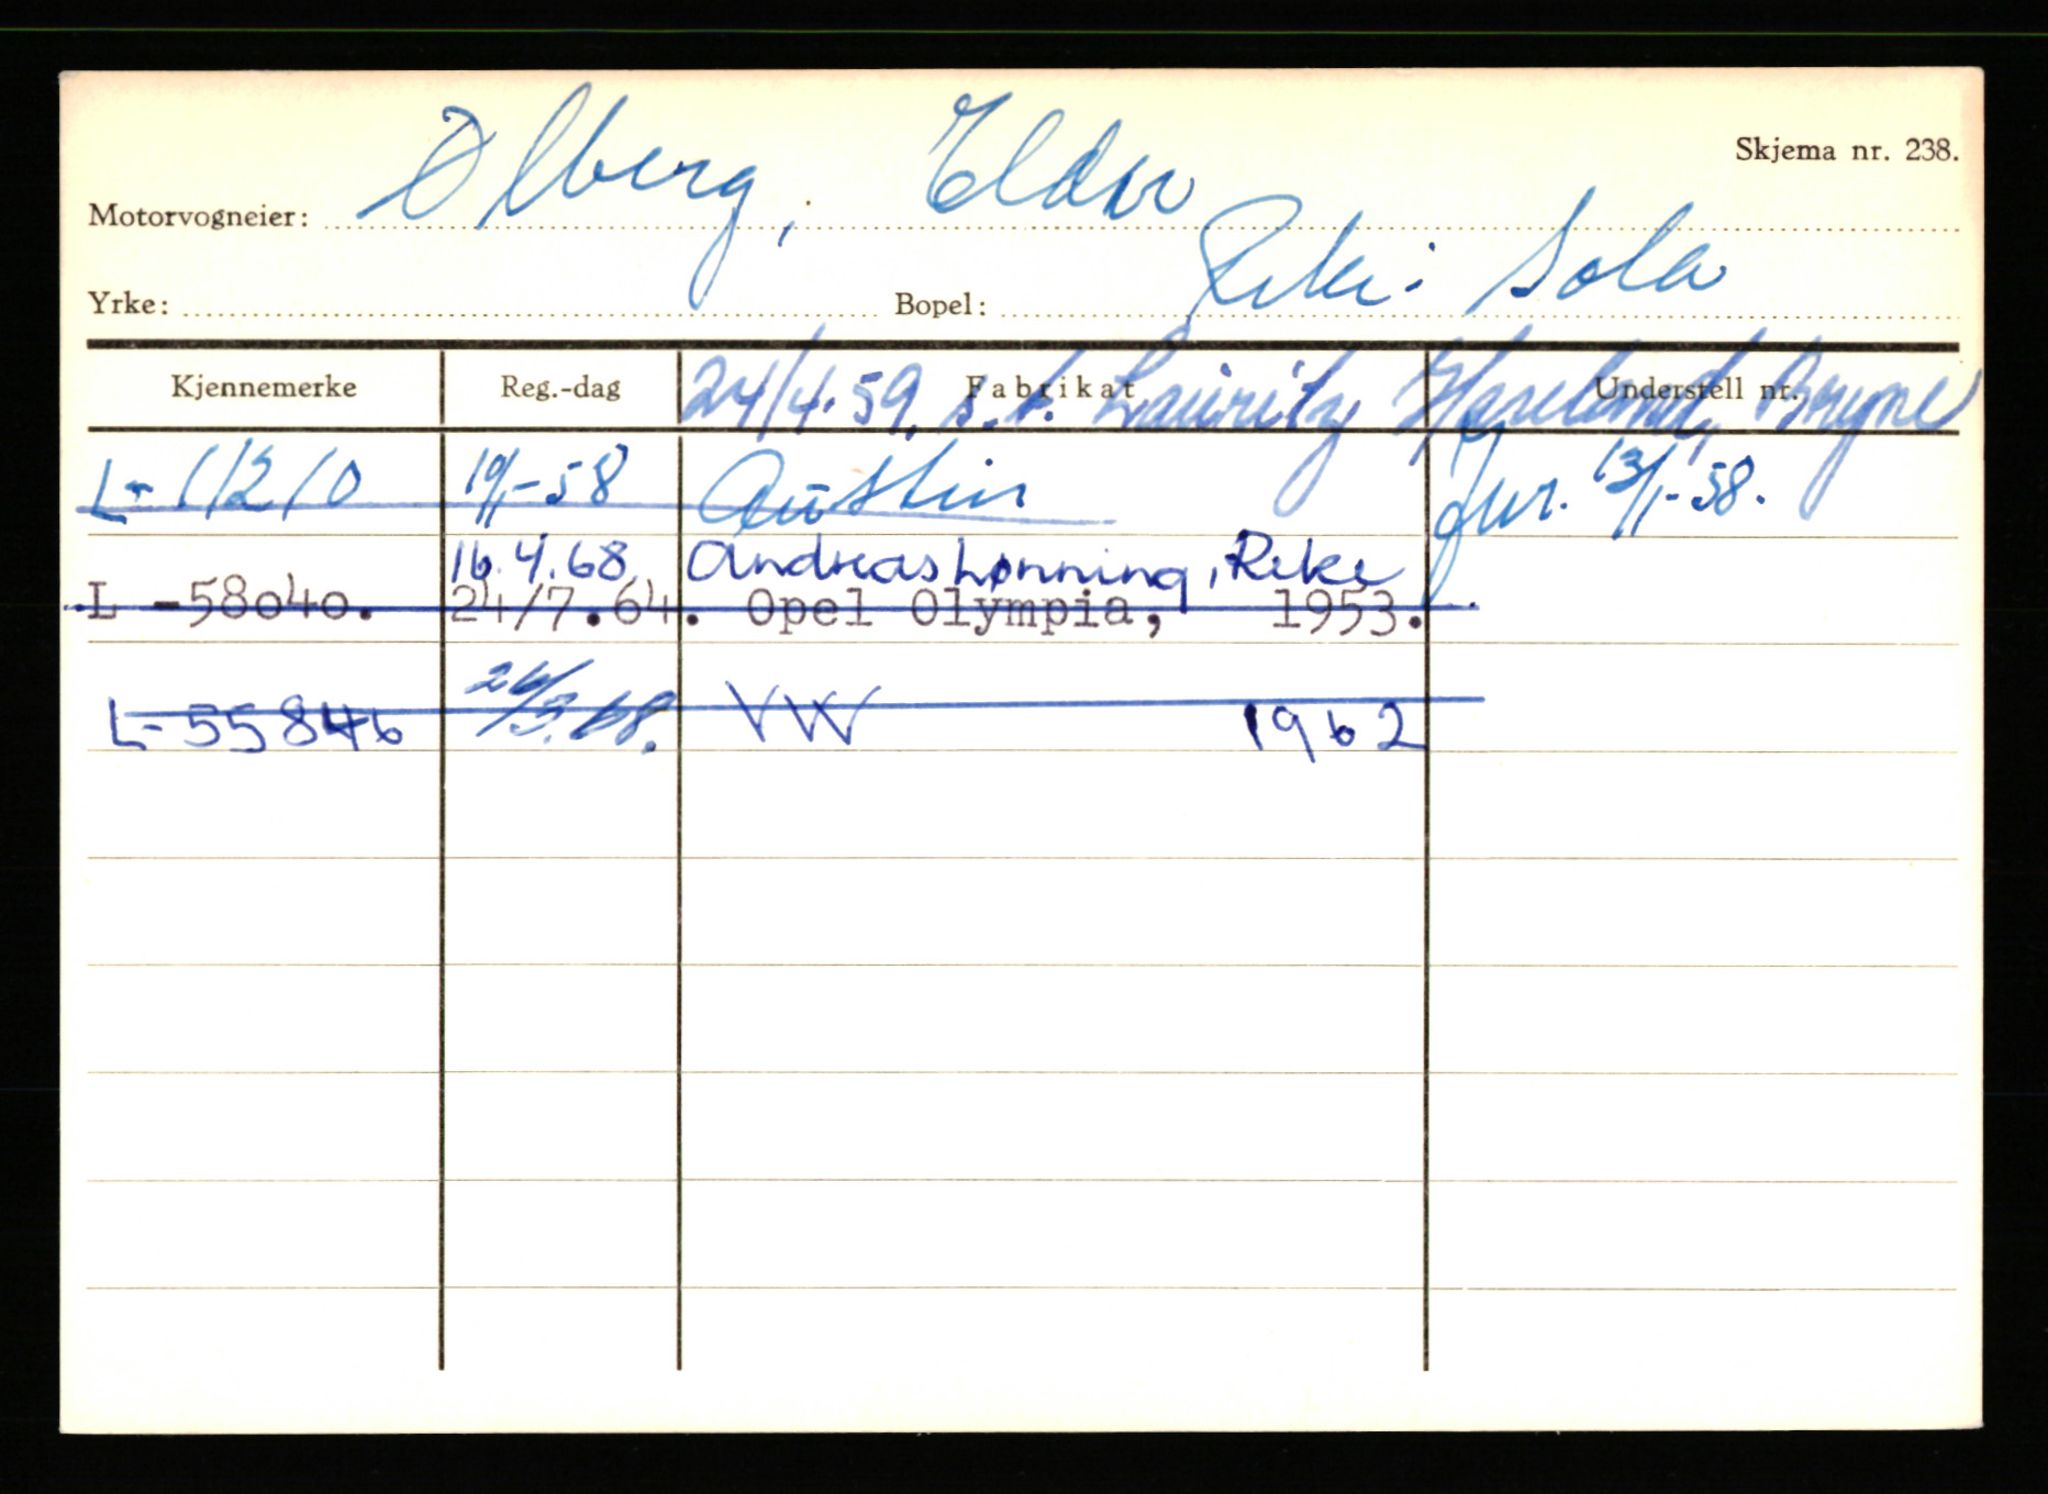 Skjema nr. 238.
Motorvogneier: Ølberg, Eldar
Yrke: Bopel: Reke: Sola
Kjennemerke Reg.-dag Fabrikat Understell nr.
24/4.59, s. t. Lauritz Bryne
L-11210 10/1-58 Austin 13/1-58.
16.4.68 Andreas Lønning, Reke
L -58040. 24/7.64. Opel Olympia, 1953.
L-55846 26/3.68. VW 1962